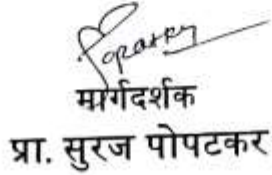 मार्गदर्शक
प्रा. सुरज पोपटकर